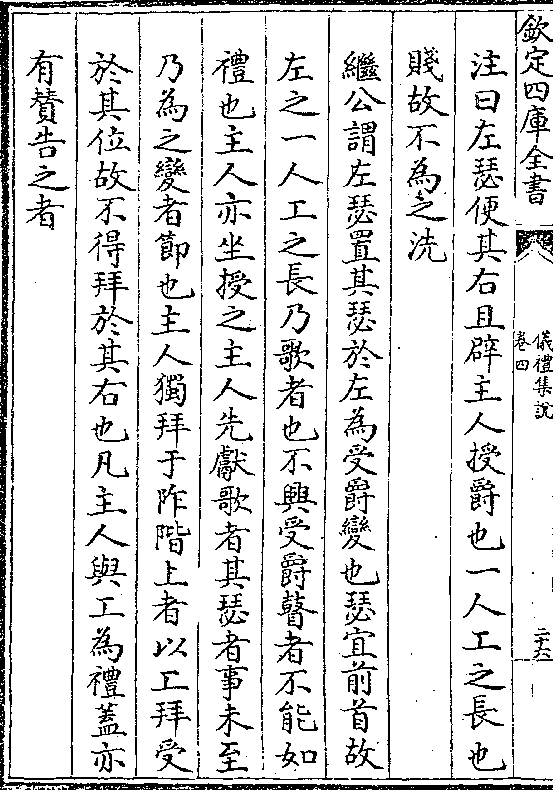 欽定四庫全書
儀禮集說
卷四
二十六
注曰左瑟便其右且辟主人授爵也一人工之長也
賤故不為之洗
繼公謂左瑟置其瑟於左為受爵變也瑟宜前首故
左之一人工之長乃歌者也不興受爵瞽者不能如
禮也主人亦坐授之主人先獻歌者其瑟者事未至
乃為之變者節也主人獨拜于阼階上者以工拜受
於其位故不得拜於其右也凡主人與工為禮蓋亦
有贊告之者